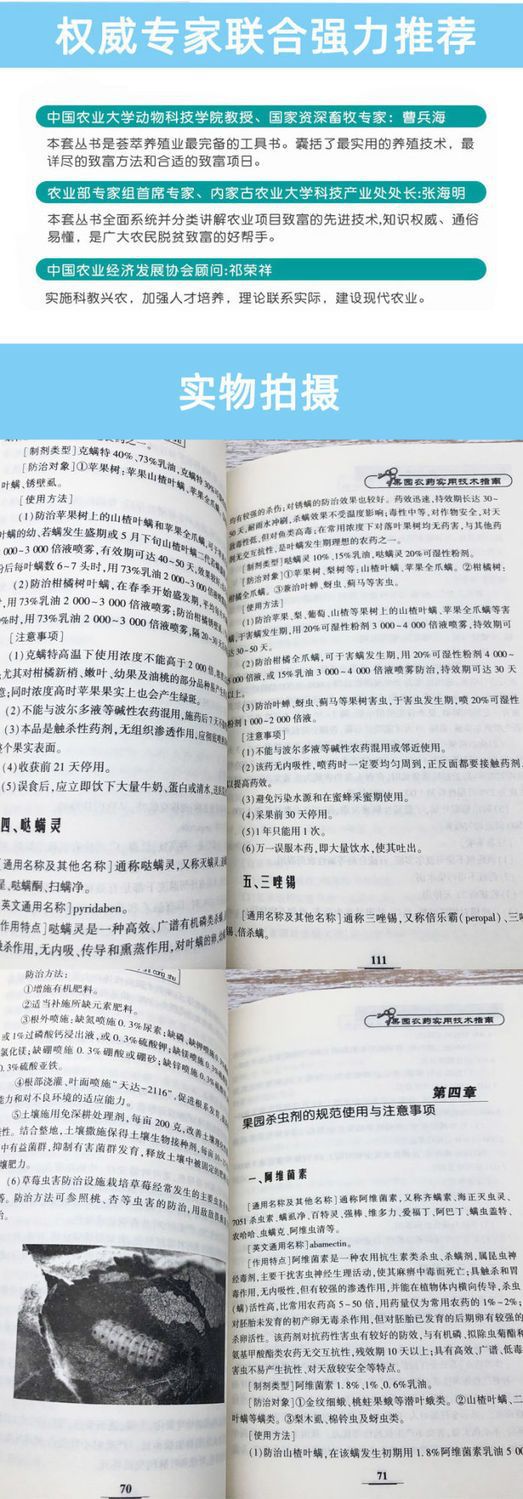 权威专家联合强力推荐
中国农业大学动物科技学院教授、国家资深畜牧专家：曹兵海
本套丛书是荟萃养殖业最完备的工具书。囊括了最实用的养殖技术，最
详尽的致富方法和合适的致富项日。
农业部专家组首席专家、内家古农业大学科技产业处处长:张海明
本套丛书全面系统并分类讲解农业项目致富的先进技术,知识权威、通俗
易懂，是广大农民脱贫致富的好帮手。
中国农业经济发展协会顾问:祁荣祥
实施科教兴农，加强人才培养，理论联系实际，建设现代农业。
实物拍摄
[制剂类型]克螨特40%、73%乳油,克螨特30%可
[防治对象]①苹果树:苹果山楂叶螨、苹果全爪螨
螨、锈壁虱.
[使用方法]
(1)防治苹果树上的山楂叶螨和苹果全爪螨,可于
叶螨的幼、若螨发生盛期或5月下旬山楂叶螨一代若螨
000~3 000倍液喷雾,有效期可达40~50天,效果较
后每叶螨数6~7头时,用73%乳油2 000~3 000倍
(2)防治柑橘树叶螨,在春季开始盛发期,平均每叶
时,用73%乳油2 000~3 000倍液喷雾;防治柑橘锈
%时,用73%乳油2 000~3 000倍液喷雾,隔20~30天
[注意事项]
(1)克螨特高温下使用浓度不能高于2 000倍,
尤其对柑橘新梢、嫩叶、幼果及油桃的部分品种易产生
意;同时浓度高时苹果果实上也会产生绿斑。
(2)不能与波尔多液等碱性农药混用,施药后7天不
(3)本品是触杀性药剂,无组织渗透作用,应彻底喷
个果实表面。
(4)收获前21天停用。
(5)误食后,应立即饮下大量牛奶、蛋白或清水,送医
四、哒螨灵
[通用名称及其他名称]通称哒螨灵,又称灭螨灵、
星、哒螨酮、扫螨净。
英文通用名称]pyridaben。
作用特点]哒螨灵是一种高效、广谱有机磷杀螨
触杀作用,无内吸、传导和熏蒸作用,对叶螨的
果园农药实用技术指南
均有较强的杀伤;对锈螨的防治效果也较好。药效迅速、持效期长达30~
50天,耐雨水冲刷,杀螨效果不受温度影响;毒性中等,对作物安全,对天
敌毒性低,但对鱼类高毒;在常用浓度下对落叶果树均无药害,与其他药
剂无交互抗性,是叶螨发生期理想的农药之一。
[制剂类型]哒螨灵10%、15%乳油,哒螨灵20%可湿性粉剂。
[防治对象]①苹果树、梨树等:山楂叶螨、苹果全爪螨。②柑橘树:
柑橘全爪螨。③兼治叶蝉、蚜虫、蓟马等害虫。
[使用方法]
(1)防治苹果、梨、葡萄、山楂等果树上的山楂叶螨、苹果全爪螨等害
螨,于害螨发生期,用20%可湿性粉剂3 000~4 000倍液喷雾,持效期可
达30~50天。
(2)防治柑橘全爪螨,可于害螨发生期,用20%可湿性粉剂4 000~
000倍液,或15%乳油3 000~4 000倍液喷雾防治,持效期可达30天
以上。
(3)防治叶蝉、蚜虫、蓟马等果树害虫,于害虫发生期,喷20%可湿性
粉剂1 000~2 000倍液。
[注意事项]
(1)不能与波尔多液等碱性农药混用或邻近使用。
(2)该药无内吸性,喷药时一定要均匀周到,正反面都要接触药剂,
以提高药效。
(3)避免污染水源和在蜜蜂采蜜期使用。
(4)采果前30天停用。
(5)1年只能用1次。
(6)万一误服本药,即大量饮水、使其吐出。
五、三唑锡
[通用名称及其他名称]通称三唑锡,又称倍乐霸(peropal)、三
锡、倍杀螨。
111
防治方法:
①增施有机肥料。
②适当补施所缺元素肥料。
③根外喷施:缺氮喷施0.3%尿素;缺磷、缺钾喷施0.3%
或1%过磷酸钙浸出液,或0.3%硫酸钾;缺镁喷施0.3%
氯化镁;缺硼喷施0.3%硼酸或硼砂;缺锌喷施0.3%硫
0.3%硫酸亚铁。
④根部浇灌、叶面喷施“天达-2116”,促进根系发育
能力和对不良环境的适应能力。
⑤土壤施用免深耕处理剂,每亩200克,改善土壤
性。结合整地,土壤撒施保得土壤生物接种剂,每亩
中有益菌群,抑制有害菌群发育,释放土壤中被固定的肥
壤肥力。
(6)草莓虫害防治设施栽培草莓经常发生的主要虫害
等。防治方法可参照桃、杏等虫害的防治,用敌敌畏
治。
70
果园农药实用技术指南
第四章
果园杀虫剂的规范使用与注意事项
一、阿维菌素
[通用名称及其他名称]通称阿维菌素,又称齐螨素、海正灭虫灵、
7051杀虫素、螨虱净、百特灵、强棒、维多力、爱福丁、阿巴丁、螨虫盖特、
农哈哈、虫螨克、阿维虫清等。
[英文通用名称]abamectin。
[作用特点]阿维菌素是一种农用抗生素类杀虫、杀螨剂,属昆虫神
经毒剂,主要干扰害虫神经生理活动,使其麻痹中毒而死亡;具触杀和胃
毒作用,无内吸性,但有较强的渗透作用,并能在植物体内横向传导,杀虫
(螨)活性高,比常用农药高5~50倍,用药量仅为常用农药的1%~2%;
对胚胎未发育的初产卵无毒杀作用,但对胚胎已发育的后期卵有较强的
杀卵活性。该药剂对抗药性害虫有较好的防效,与有机磷、拟除虫菊酯和
氨基甲酸酯类农药无交互抗性,残效期10天以上;具有高效、广谱、低毒
害虫不易产生抗性、对天敌较安全等特点。
[制剂类型]阿维菌素1.8%、1%、0.6%乳油。
[防治对象]①金纹细蛾、桃蛀果蛾等潜叶蛾类。②山楂叶螨、二
叶螨等螨类。③梨木虱、棉铃虫及蚜虫类。
[使用方法]
(1)防治山楂叶螨,在该螨发生初期用1.8%阿维菌素乳油5 00
71